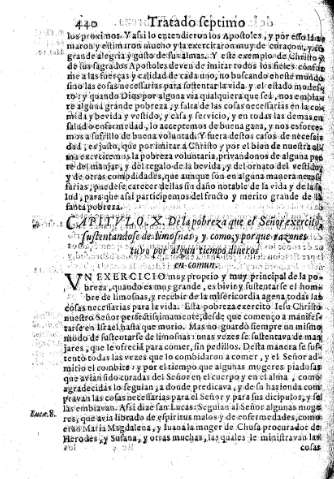 440 Tratado septimo
los proximos. Y assi lo entendieron los Apostoles, y por esso la a-
maron y estimaron mucho y la exercitaron muy de coraçon, y cõ
grande alegria y gusto de sus almas. Y este exemplo de Christo y
de sus sagrados Apostoles deuen de imitar todos los fieles confor
me a las fuerças y calidad de cada uno, no buscando en este mundo
sino las cosas necessarias para sustentar la vida y el estado modes-
to: y quando Dios por alguna via qualquiera que sea, nos embia
re algun grande pobreza, y falta de las cosas necessarias en la co-
mida y bevida y vestido, y casa y servicio, y en todas las demas, en
salud o enfermedad, lo acceptemos de buena gana, y nos conforze-
mos a sufrillo de buena voluntad. Y fuera destos casos de necessi-
dad, es justo, que por imitar a Christo y por el bien de nuestra al-
ma exercitemos la pobreza voluntaria, privandonos de alguna par
te del manjar, y del regalo de la bevida, y del ornato del vestido,
y de otras comodidades, que aunque son en alguna manera neces-
sarias, puedese carecer dellas sin daño notable de la vida y de la sa-
lud, para que assi participemos del fructo y merito grande de la
santa pobreza.
CAPITVLO. X. De la pobreza que el Señor exercitó,
sustentandose de limosnas, y como, y porque razones
tuvo por algun tiempo dineros
en comun.
VN EXERCICIO muy proprio y muy principal de la po-
breza, quando es muy grande, es bivir y sustentarse el hom-
bre de limosnas, y recebir de la misericordia agena todas las
cosas necessarias para la vida. Esta pobreza exercito Iesu Christo
nuestro Señor perfectissimamente, desde que començo a manifes-
tarse en Israel hasta que morio. Mas no guardó siempre un mismo
modo de sustentarse de limosnas: unas vezes se sustentava de man-
jares, que le ofrecia para comer, sin pedillos. Desta manera se sus-
tentó todas las vezes que lo combidaron a comer, y el Señor ad-
mitio el combite: y por el tiempo que algunas mugeres piadosas
que avian sido curadas del Señor en el cuerpo y en el alma, como
agradecidas lo seguian, a donde predicava, y de su hazienda com
pravan las cosas necessarias para el Señor y para sus dicipulos, y se
las embiavan. Assi dize san Lucas: Seguian al Señor algunas muge-
res, que avia librado de espiritus malos y de enfermedades, como
eran Maria Magdalena, y Iuana la muger de Chusa procurador de
Herodes, y Susana, y otras muchas, las quales le ministravan las
cosas
Lucæ 8.